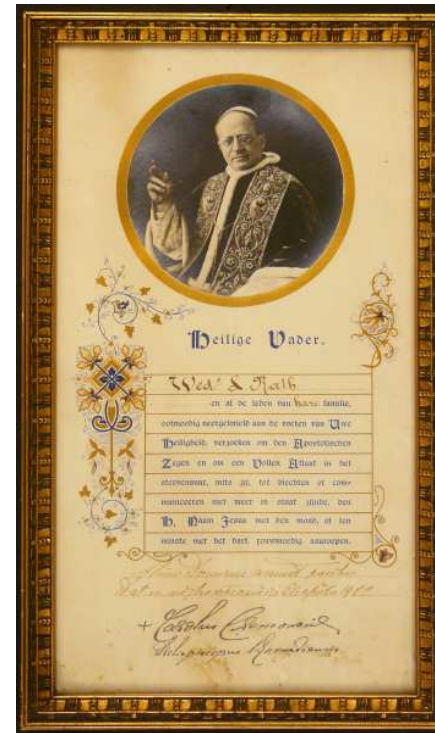 Heilige Vader,
Wed.e & Rath
en al de leden van hare familie,
ootmoedig neergeknield aan de voeten van Uwe
Heiligheid, verzoeken om den Apostolischen
Zegen en om een Vollen Aflaat in het
stervensuur, mits zij, tot biechten of com-
municeeren niet meer in staat zijnde, den
H. Naam Jezus met den mond, of ten
minste met het hart, rouwmoedig aanroepen.
+ Carolus